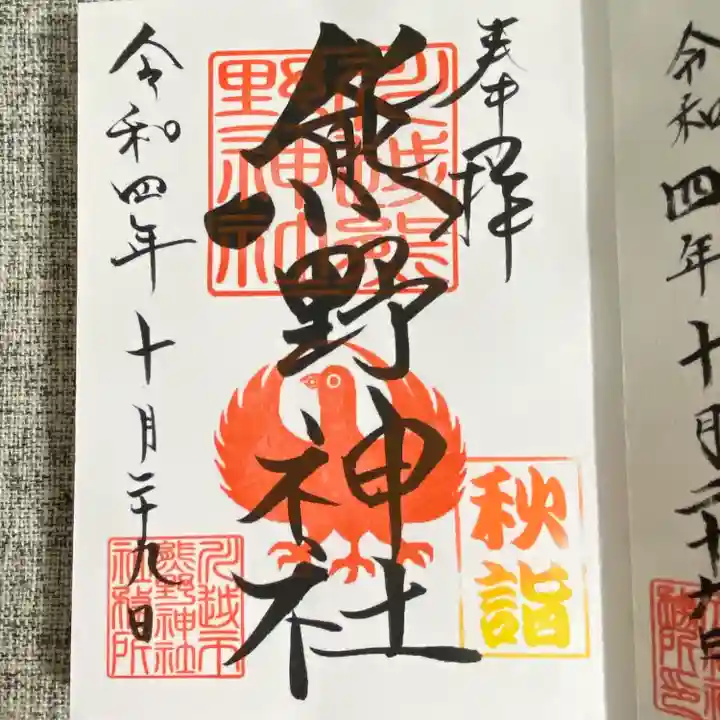 令和四年十月二十六日
奉拝
川越熊野神社
熊野神社
秋詣
令和四年十月二十九日
川越市
熊野神社
社務所